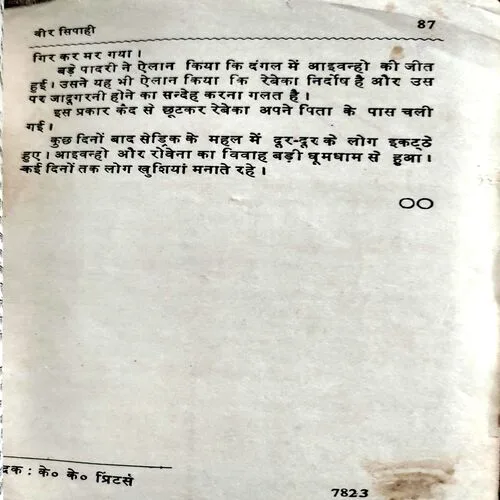 वीर सिपाही
87
गिर कर मर गया।
बड़े पादरी ने ऐलान किया कि दंगल में आइवन्हो की जीत
हुई। उसने यह भी ऐलान किया कि रेबेका निर्दोष है और उस
पर जादूगरनी होने का सन्देह करना गलत है।
इस प्रकार कैद से छूटकर रेबेका अपने पिता के पास चली
गई।
कुछ दिनों बाद सेड्रिक के महल में दूर-दूर के लोग इकट्ठे
हुए। आइवन्हो और रोवेना का विवाह बड़ी धूमधाम से हुआ।
कई दिनों तक लोग खुशियां मनाते रहे।
द्रक : के० के० प्रिंटर्स
7823